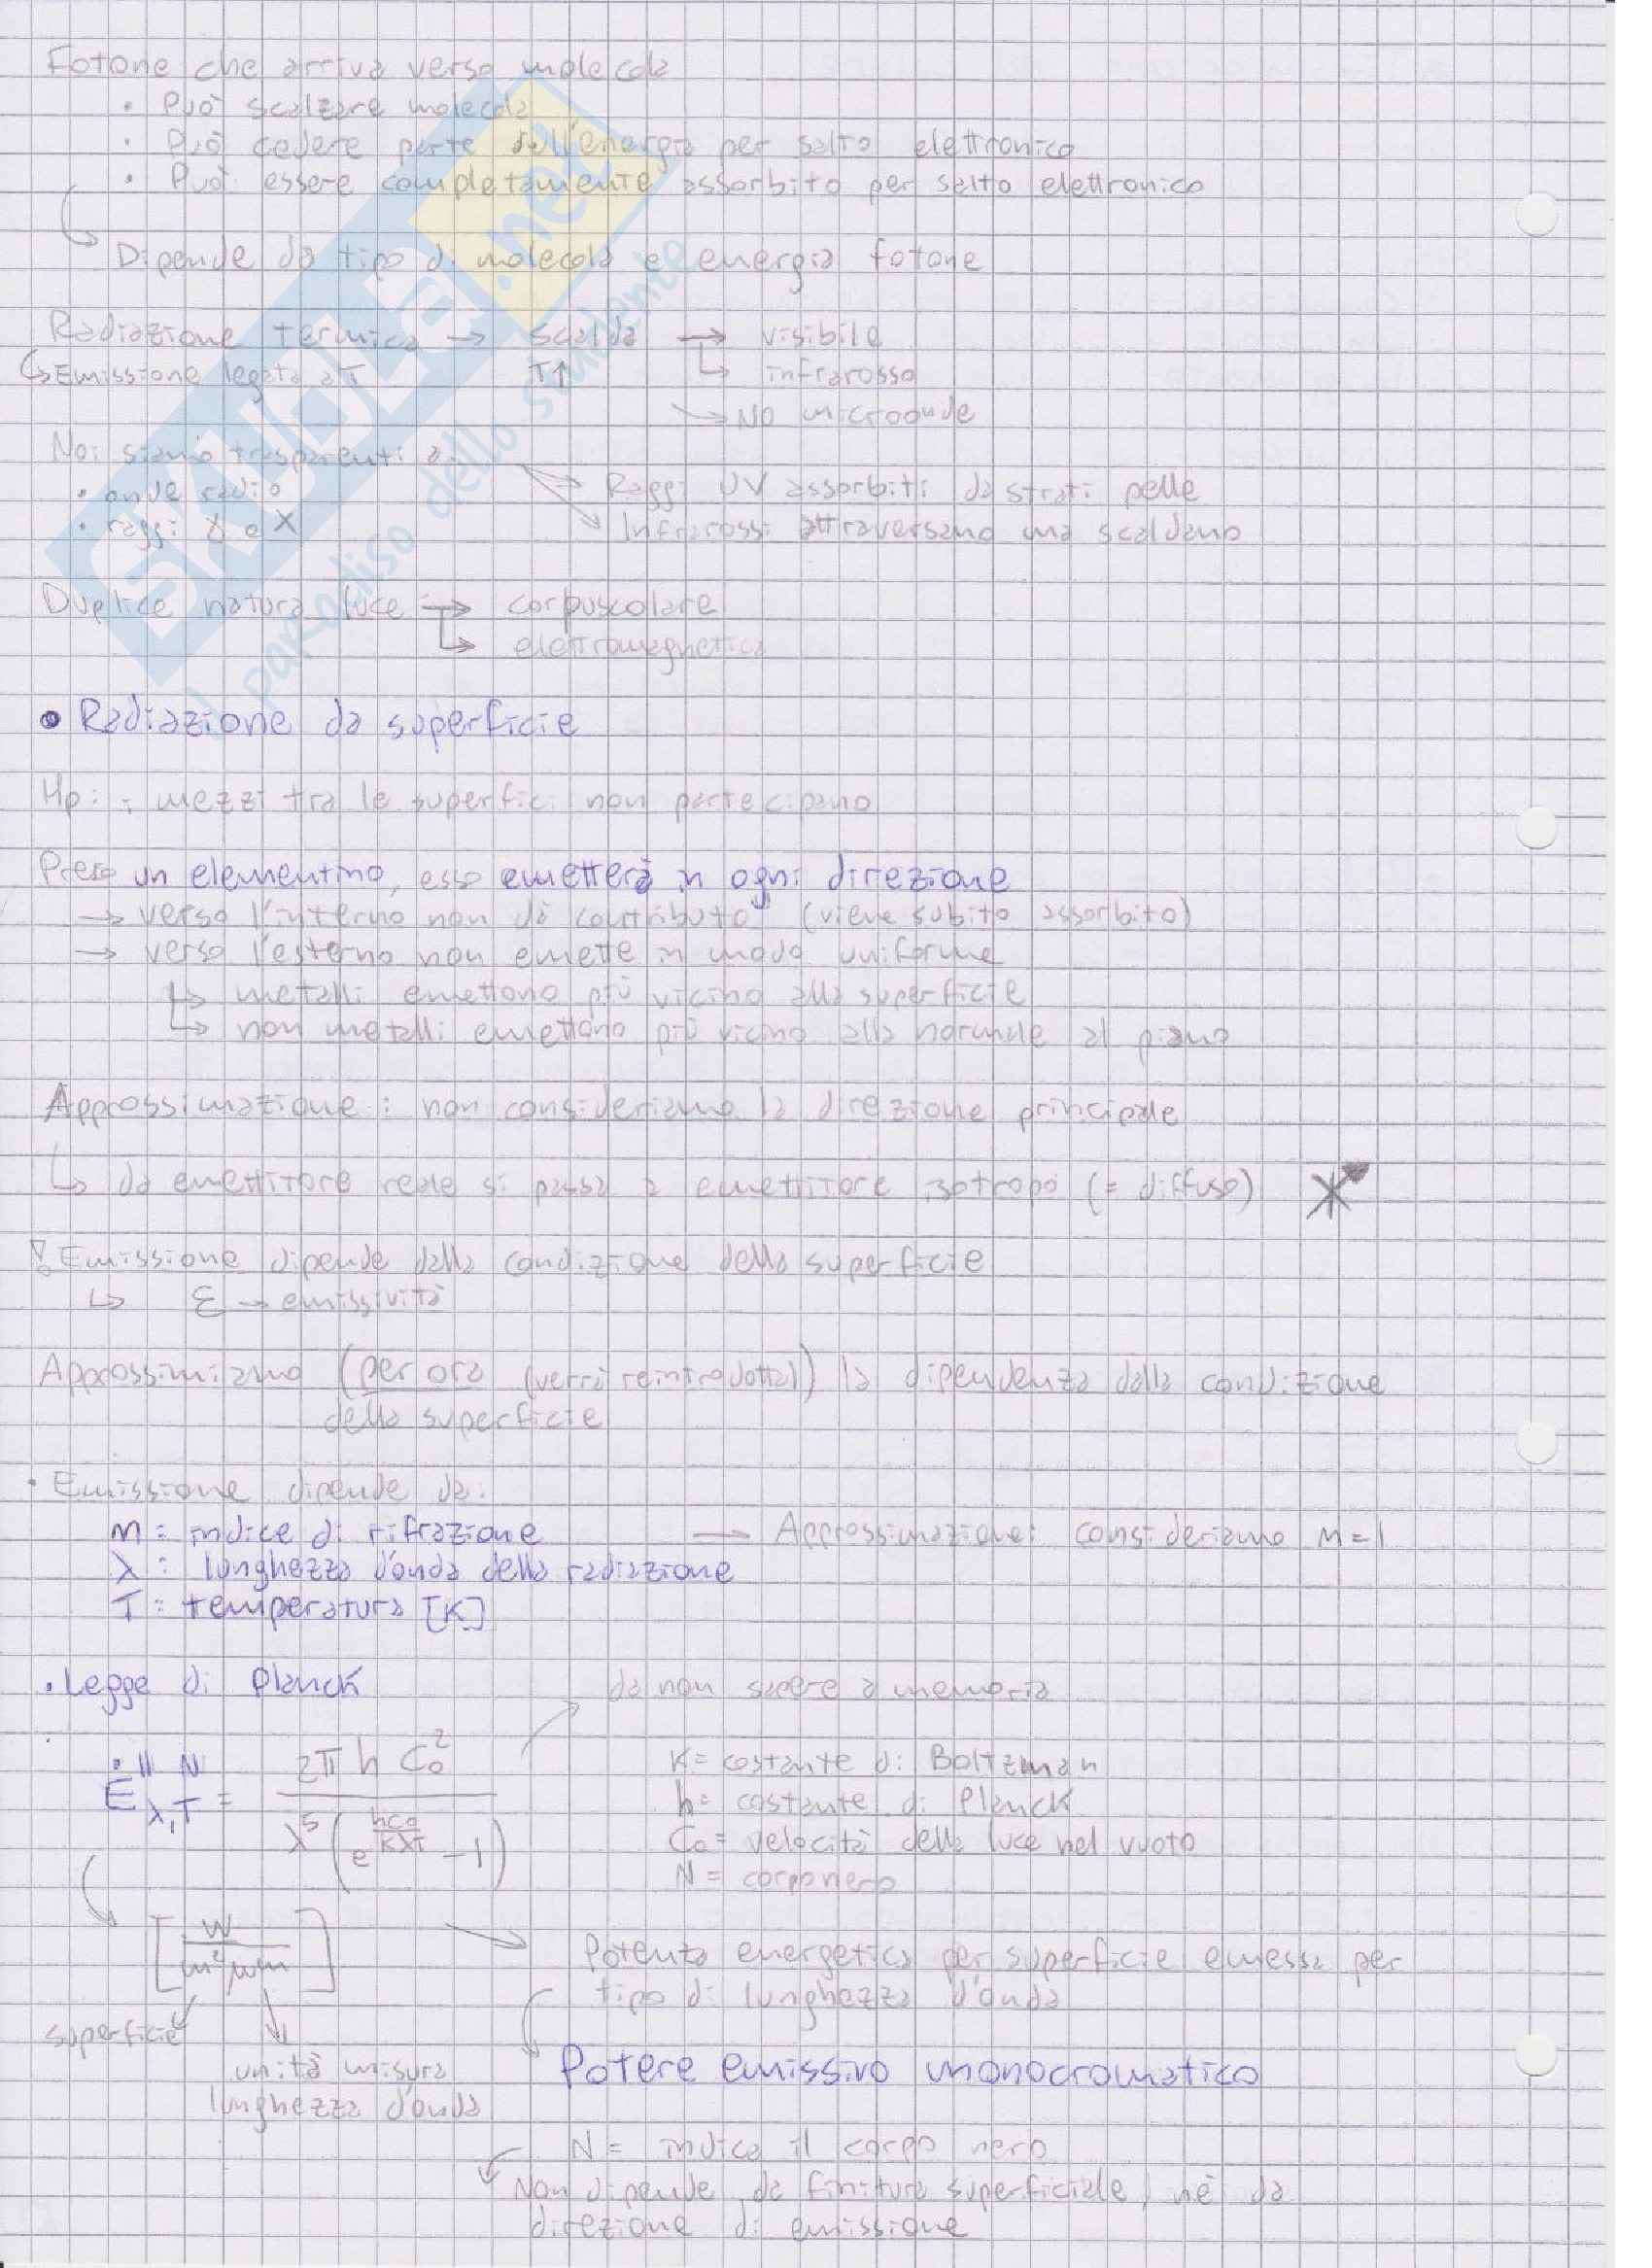 Fotone che arriva verso molecola
• Può scalzare molecola
• Può cedere parte dell'energia per salto elettronico
• Può essere completamente assorbito per salto elettronico
↳ Dipende da tipo di molecola e energia fotone
Radiazione termica → scalda → visibile
↳ Emissione legata a T T↑ ↳ infrarosso
→ No microonde
Noi siamo trasparenti a:
• onde radio → Raggi UV assorbiti da strati pelle
• raggi γ e X → Infrarossi attraversano ma scaldano
Duplice natura luce → corpuscolare
↳ elettromagnetica
• Radiazione da superficie
Hp: i mezzi tra le superfici non partecipano
Preso un elementino, esso emetterà in ogni direzione
→ verso l'interno non dà contributo (viene subito assorbito)
→ verso l'esterno non emette in modo uniforme
↳ metalli emettono più vicino alla superficie
↳ non metalli emettono più vicino alla normale al piano
Approssimazione: non consideriamo la direzione principale
↳ da emettitore reale si passa a emettitore isotropo (= diffuso)
! Emissione dipende dalla condizione della superficie
↳ ε → emissività
Approssimiamo (per ora (verrà reintrodotta)) la dipendenza dalla condizione
della superficie
• Emissione dipende da:
n = indice di rifrazione → Approssimazione: consideriamo n = 1
λ = lunghezza d'onda della radiazione
T = temperatura [K]
• Legge di Planck da non sapere a memoria
Ė''ᴺ λ,T = 2π h C₀² / λ⁵ (e^(hC₀/KλT) - 1)
K = costante di Boltzman
h = costante di Planck
C₀ = velocità della luce nel vuoto
N = corpo nero
[W / m² μm]
Potenza energetica per superficie emessa per
tipo di lunghezza d'onda
superficie
unità misura
lunghezza d'onda
Potere emissivo monocromatico
N = indica il corpo nero
Non dipende da finitura superficiale, nè da
direzione di emissione
SKUOLA.net
il paradiso dello studente